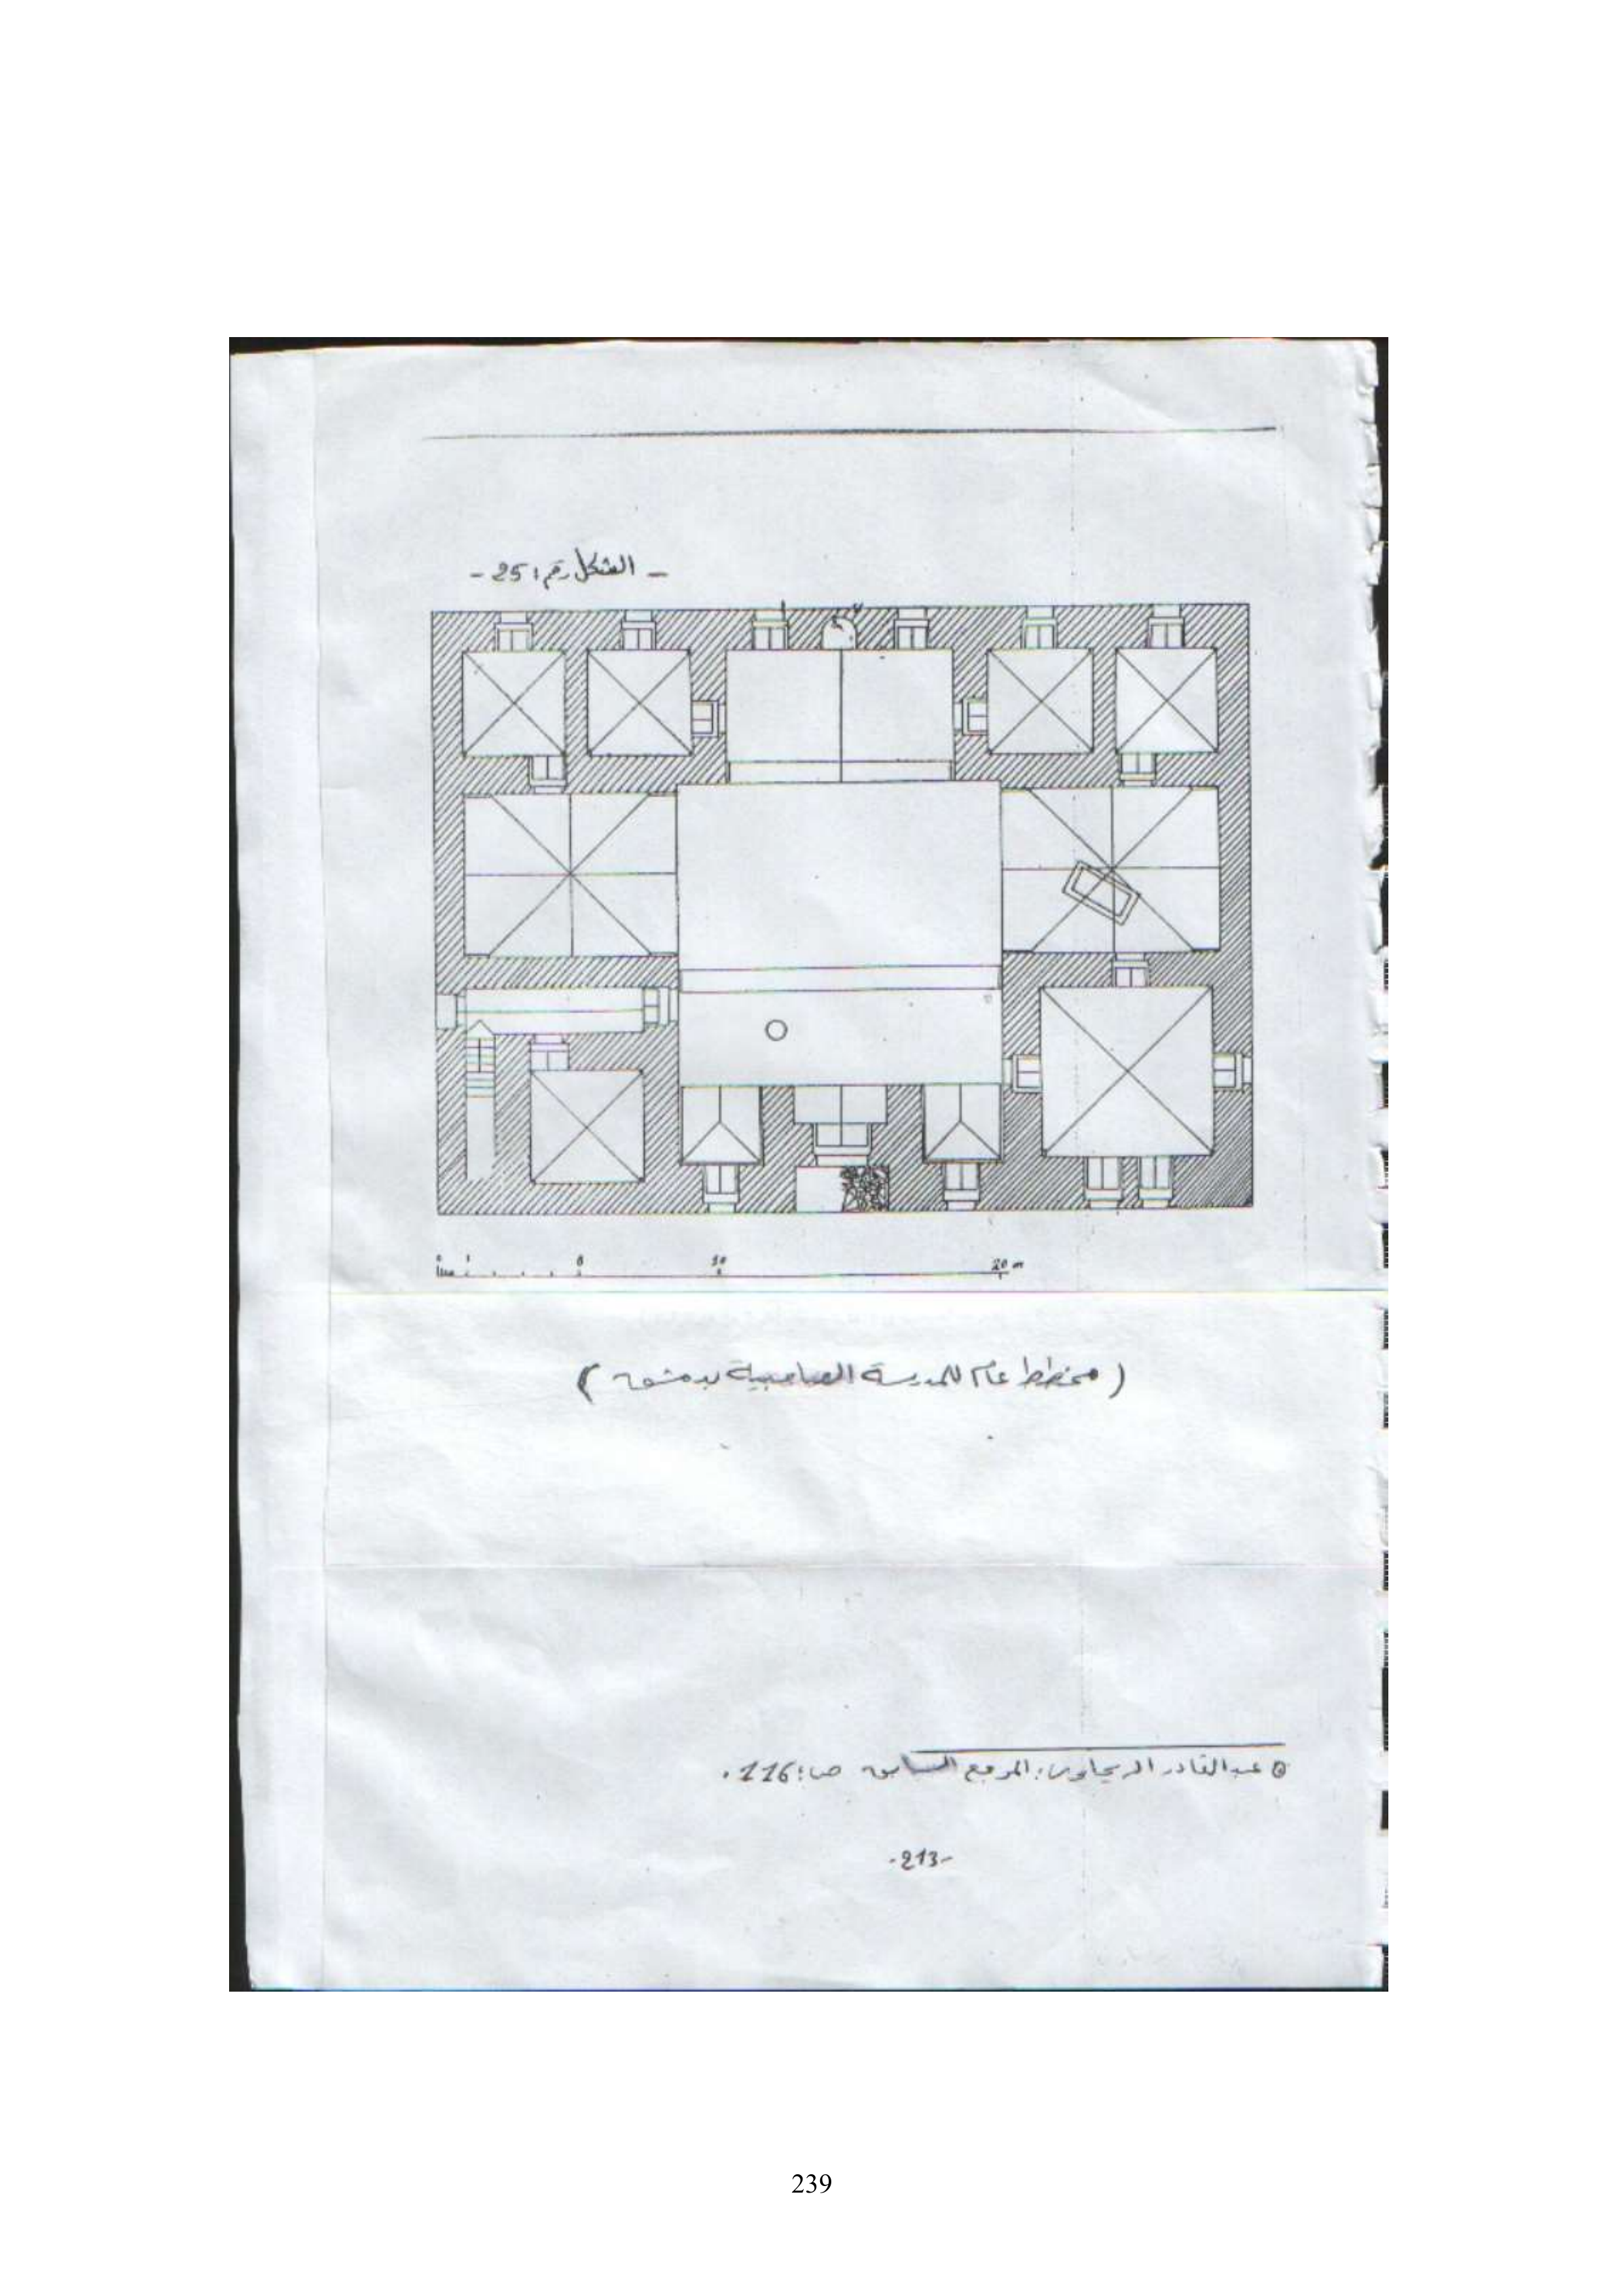 - الشكل رقم: 25 -
0 1 5 10 20 m
( مخطط عام للمدرسة الصاحبية بدمشق )
عبد القادر الريحاوي: المرجع السابق ص: 116.
-213-
239